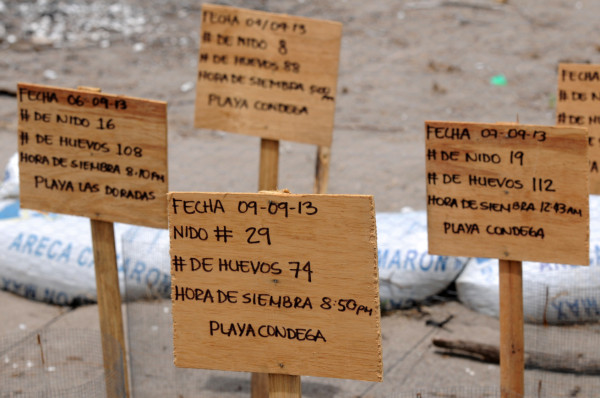 FECHA 04/09-13
# DE NIDO 8
# DE HUEVOS 88
HORA DE SIEMBRA 5:00 AM
PLAYA CONDEGA
FECHA 06-09-13
# DE NIDO 16
# DE HUEVOS 108
HORA DE SIEMBRA 8:10PM
PLAYA LAS DORADAS
FECHA 09-09-13
NIDO # 29
# DE HUEVOS 74
HORA DE SIEMBRA 8:50PM
PLAYA CONDEGA
FECHA 07-09-13
# DE NIDO 19
# DE HUEVOS 112
HORA DE SIEMBRA 12:43AM
PLAYA CONDEGA
FECHA
# DE N
# DE
HORA
ARECA CAMARON